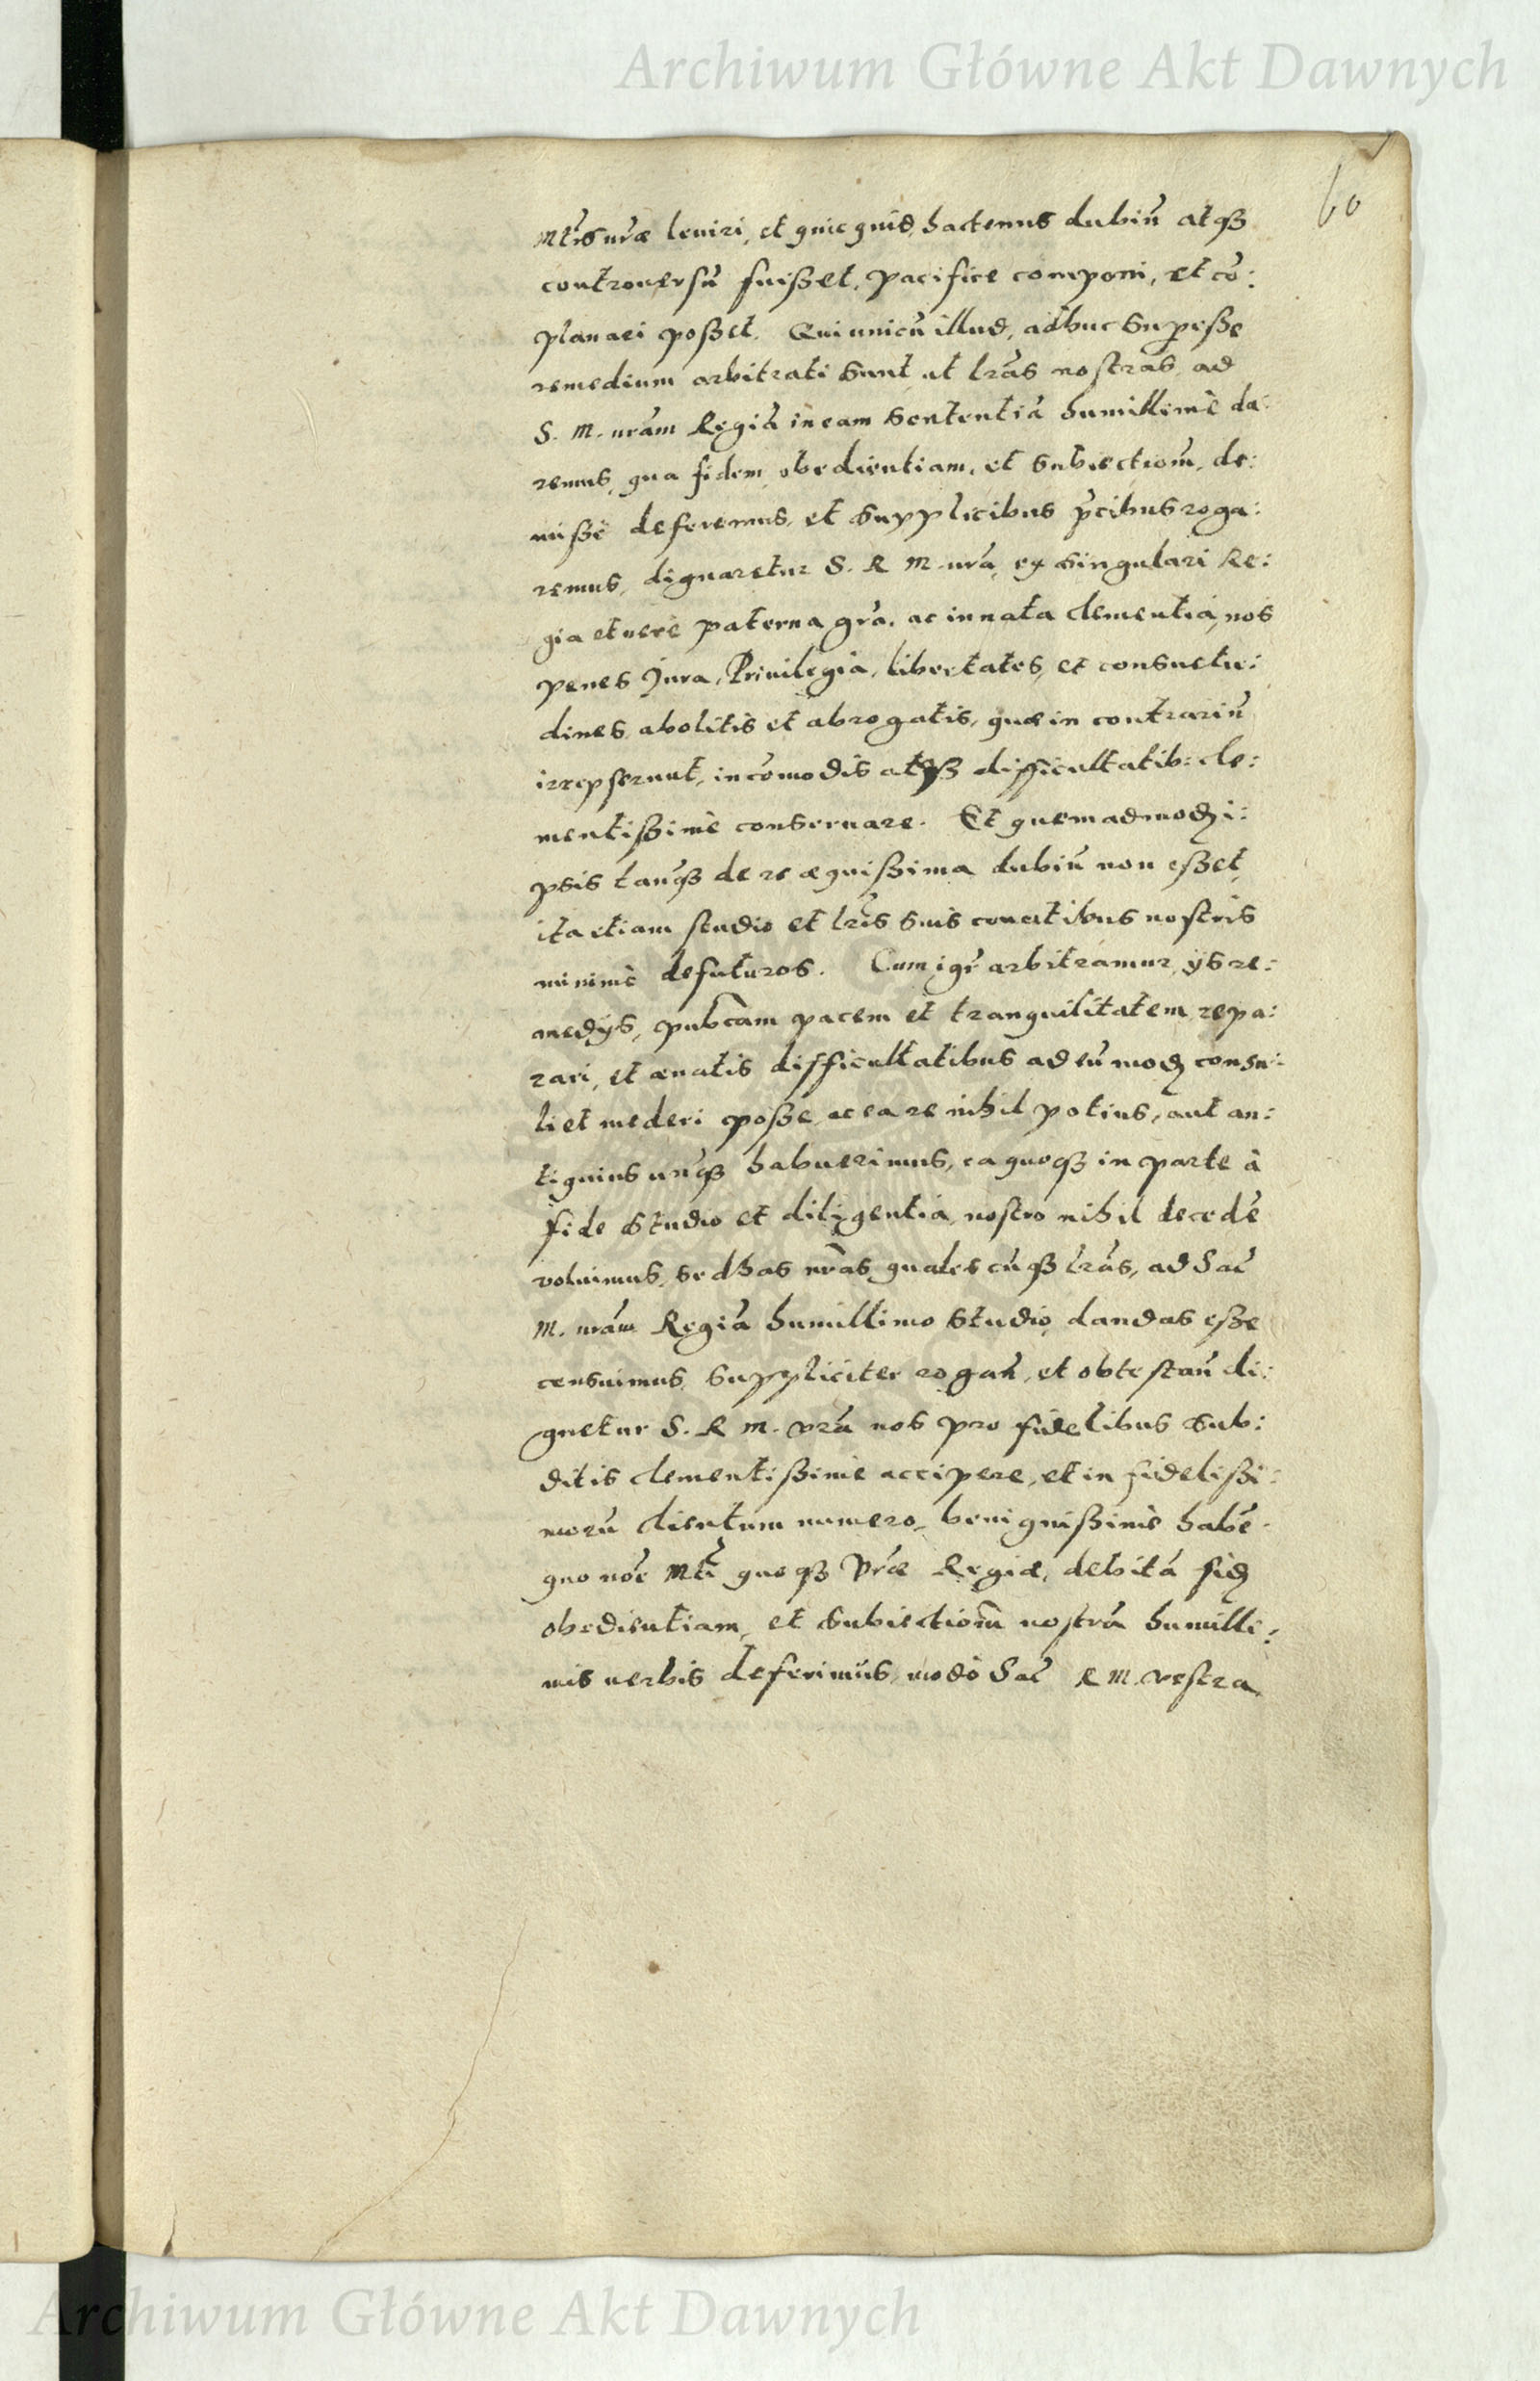 Archiwum Główne Akt Dawnych
60
Mtĩs vr̃æ leniri, et quicquid hactenus dubiũ atqȝ
controuersũ fuißet, pacifice componi, et cõ:
planari poßet. Qui unicũ illud, adhuc superesße
remedium arbitrati sunt ut lr̃as nostras, ad
S. M. vr̃am Regiã in eam sententiã humillimè da:
remus, qua fidem, obedientiam, et subiectiom̃, de:
mißè deferemus, et supplicibus p̃cibus roga:
remus, dignaretur S. R. M. vr̃a, ex singulari Re:
gia et verè paterna gr̃a, ac innata clementia, nos
penes Jura, Priuilegia, libertates, et consuetu:
dines, abolitis et abrogatis, quæ in contrariũ
irrepserunt, incõmodis atqȝ difficultatib: cle:
mentißimè conseruare. Et quemadmodȝ i:
psis tanq̃ȝ de re æquißima dubiũ non eßet,
ita etiam studio et lr̃is suis conatibus nostris
minimè defuturos. Cum igr̃ arbitramur, ijs re:
medijs, pubcam̃ pacem et tranquilitatem repa:
rari, et enatis difficultatibus ad eũ modȝ consu:
li et mederi poße, ac ea re nihil potius, aut an:
tiquius unq̃ȝ habuerimus, ea quoqȝ in parte à
fide studio et diligentia, nostro nihil decedẽ
voluimus, sed has nr̃as qualescũqȝ lr̃as, ad Sac̃
M. vr̃am Regiã humillimo studio, dandas eße
censuimus, suppliciter rogañ, et obtestañ di:
gnetur S. R. M. vr̃a nos pro fidelibus sub:
ditis clementißimè accipere, et in fidelißi:
morũ clientum numero, benignißimè habẽ.
quo nõe Mtĩ quoqȝ Vr̃æ Regiæ, debitã fidȝ
obedientiam, et subiectiom̃ nostrã humilli:
mis uerbis deferimus, modò Sac̃ R. M. vestra
Archiwum Główne Akt Dawnych